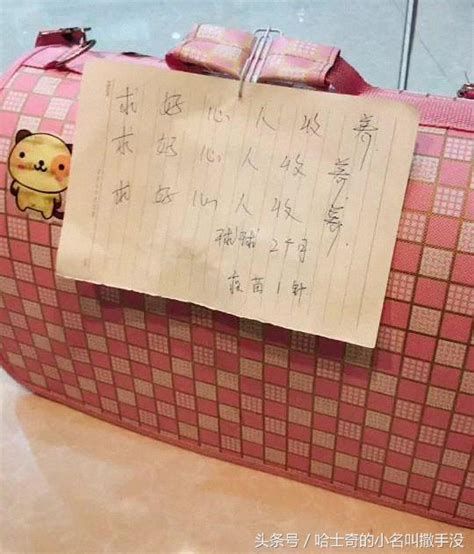 求好心人收养
求好心人收养
求好心人收养
球球2个月
疫苗1针
头条号/哈士奇的小名叫撒手没